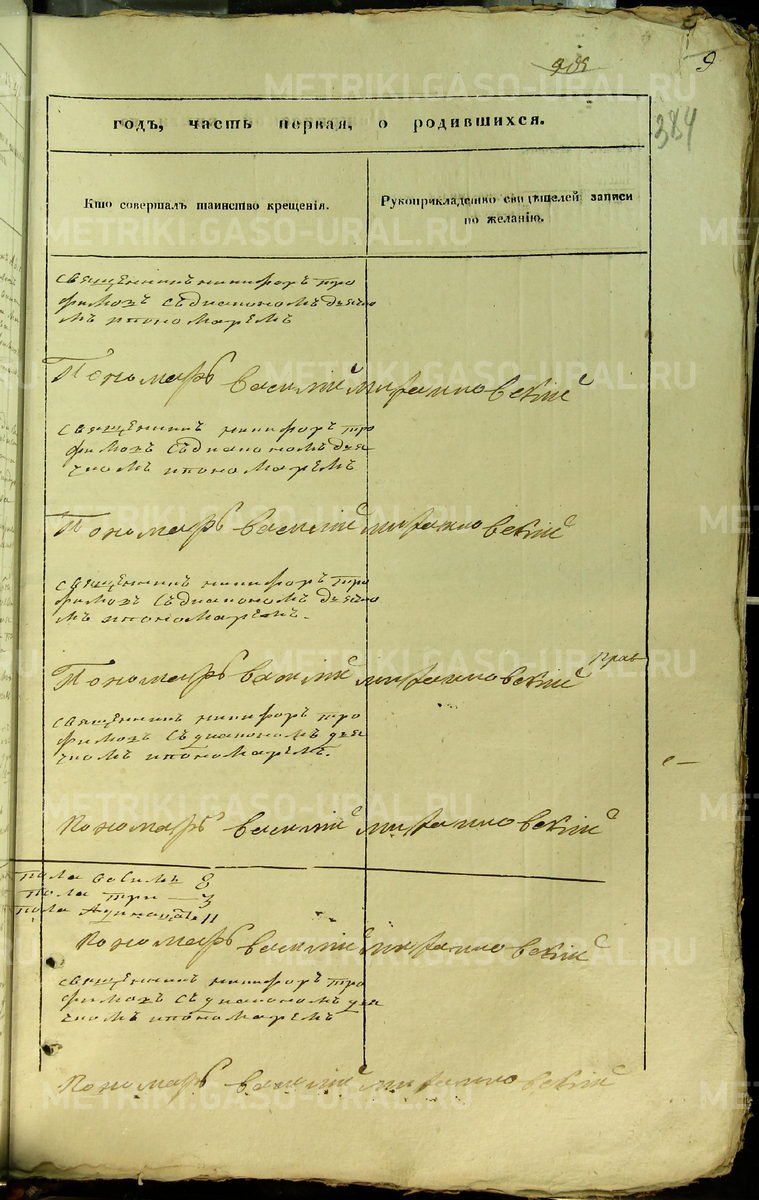 9
384
годъ, часть первая, о родившихся.
Кто совершалъ таинство крещенія.
Рукоприкладство свидѣтелей записи
по желанію.
священникъ никифоръ тро
фимовъ съ диакономъ дьячко
мъ и пономаремъ
Пономарь василий михаиловский
священникъ никифоръ тро
фимовъ съ диакономъ дья
чкомъ и пономаремъ
Пономарь василий михаиловский
священникъ никифоръ тро
фимовъ съ диакономъ дьячко
мъ и пономаремъ.
Пономарь василий михаиловский
священникъ никифоръ тро
фимовъ съ диакономъ дья
чкомъ и пономаремъ.
Пономарь василий михаиловский
пола 8
пола три 3
пола 11
Пономарь василий михаиловский
священникъ никифоръ тро
фимовъ съ диакономъ дья
чкомъ и пономаремъ
Пономарь василий михаиловский
METRIKI.GASO-URAL.RU